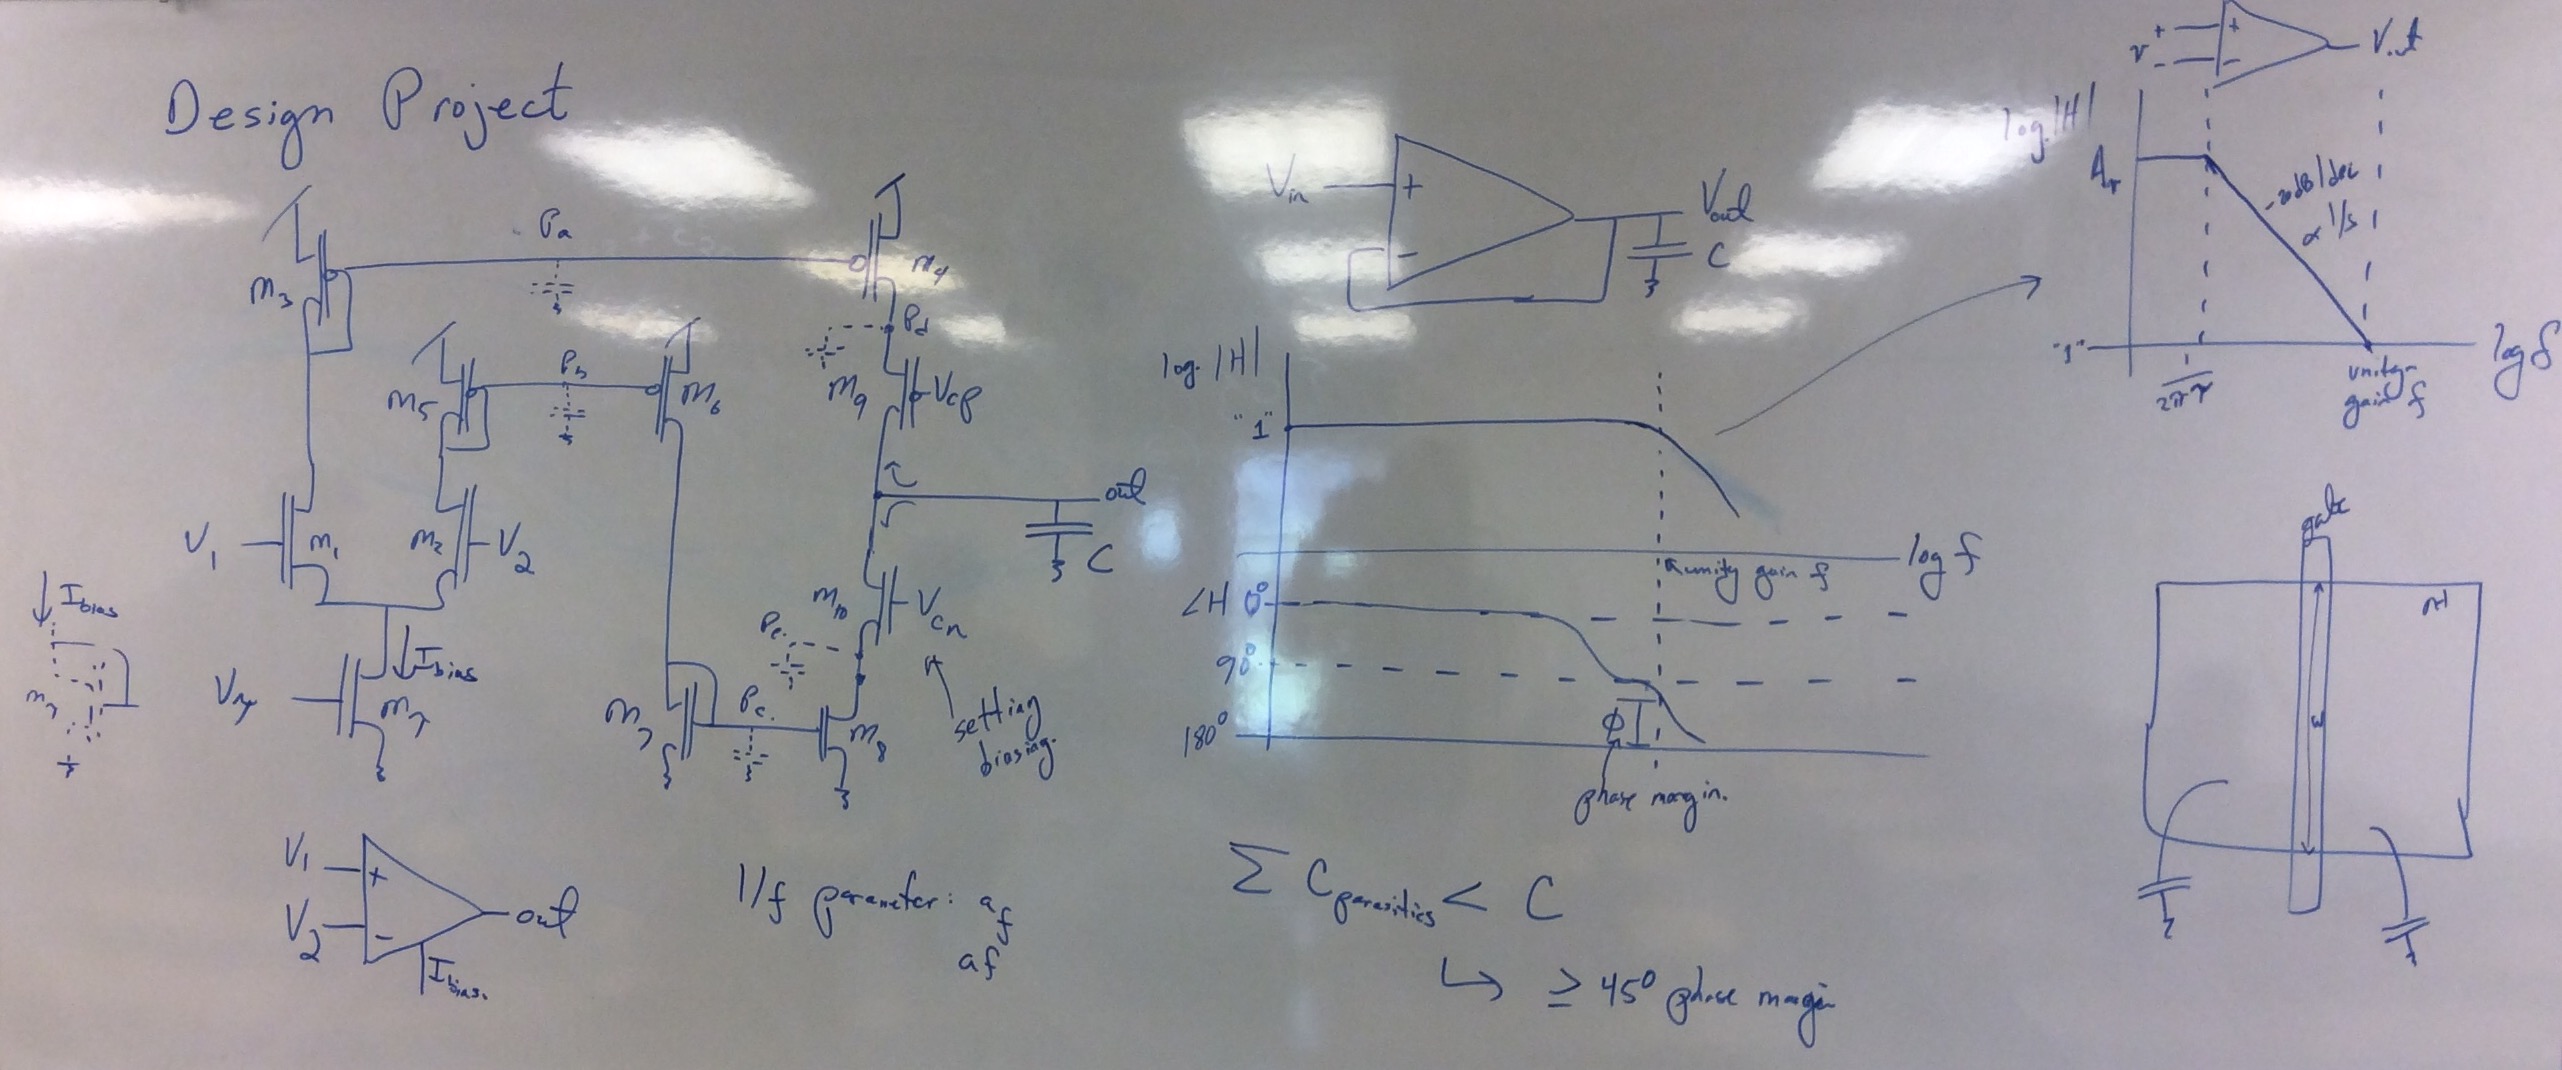 Design Project
M3
Pa
M4
Pd
M5
Pb
M6
M9
Vcp
V1
M1
M2
V2
out
C
Ibias
Ibias
M10
Vcn
Pe
M7
M7
Pc
M8
setting
biasing.
V1
+
V2
-
out
Ibias.
1/f parameter: af
af
Vin
+
-
Vout
C
log |H|
"1"
log f
unity gain f
∠H
0°
90°
180°
Φ
phase margin.
Σ Cparasitics < C
↳ ≥ 45° phase margin
V+
V-
+
-
Vout
log |H|
-20dB/dec
∝ 1/s
"1"
log f
1/2πτ
unity-
gain f
gate
n+
W